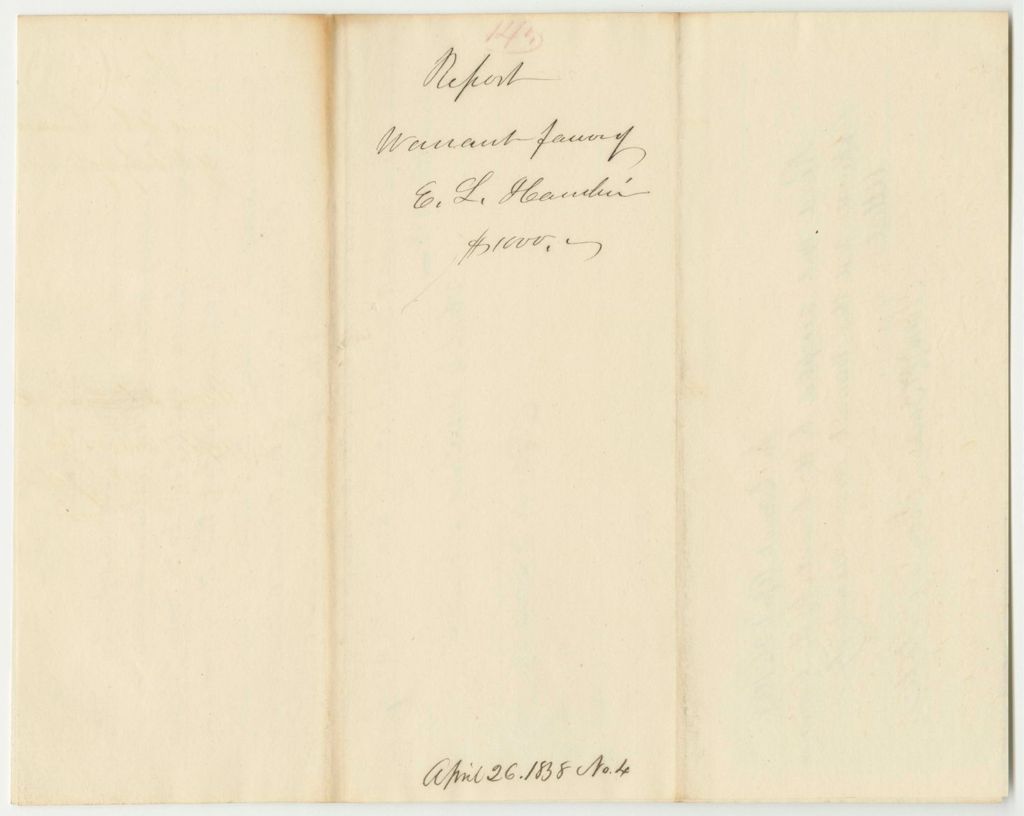 14
Report
Warrant favor of
E. L. Hamlin
$1000.
April 26. 1838 No. 4